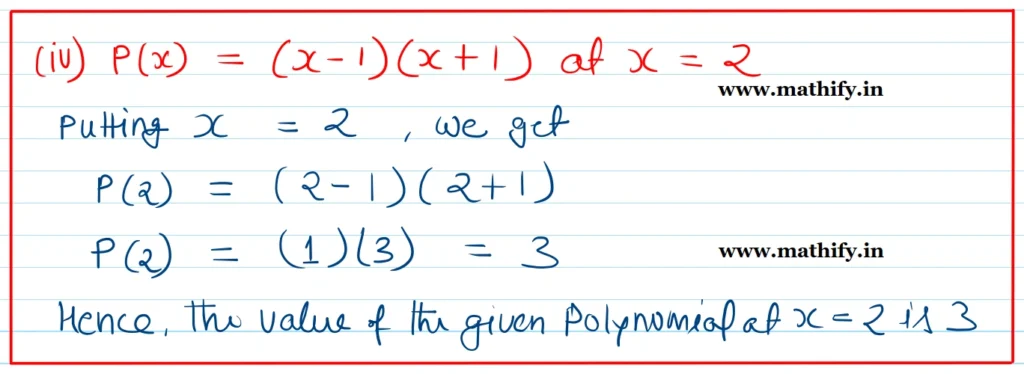 (iv) P(x) = (x-1)(x+1) at x = 2
www.mathify.in
Putting x = 2, we get
P(2) = (2-1)(2+1)
P(2) = (1)(3) = 3
www.mathify.in
Hence, the value of the given Polynomial at x = 2 is 3